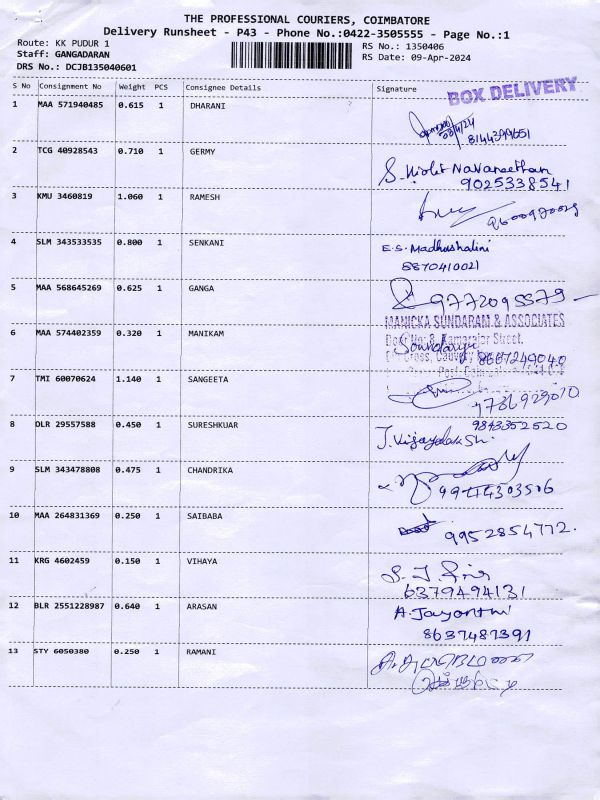 THE PROFESSIONAL COURIERS, COIMBATORE
Delivery Runsheet - P43 - Phone No.:0422-3505555 - Page No.:1
Route: KK PUDUR 1
Staff: GANGADARAN
DRS No.: DCJB135040601
RS No.: 1350406
RS Date: 09-Apr-2024
S No Consignment No Weight PCS Consignee Details Signature
BOX DELIVERY
1 MAA 571940485 0.615 1 DHARANI
8144399651
2 TCG 40928543 0.710 1 GERMY
S. Violit Navaneethan
9025338541
3 KMU 3460819 1.060 1 RAMESH
4 SLM 343533535 0.800 1 SENKANI
E.S. Madhushalini
8870410021
5 MAA 568645269 0.625 1 GANGA
9772095579
MANICKA SUNDARAM & ASSOCIATES
6 MAA 574402359 0.320 1 MANIKAM
Soundarya
8667249040
7 TMI 60070624 1.140 1 SANGEETA
7786929070
8 DLR 29557588 0.450 1 SURESHKUAR
9843352520
9 SLM 343478808 0.475 1 CHANDRIKA
9944303506
10 MAA 264831369 0.250 1 SAIBABA
9952854772.
11 KRG 4602459 0.150 1 VIHAYA
6379494131
12 BLR 2551228987 0.640 1 ARASAN
A. Jayanthi
8637487391
13 STY 6050380 0.250 1 RAMANI